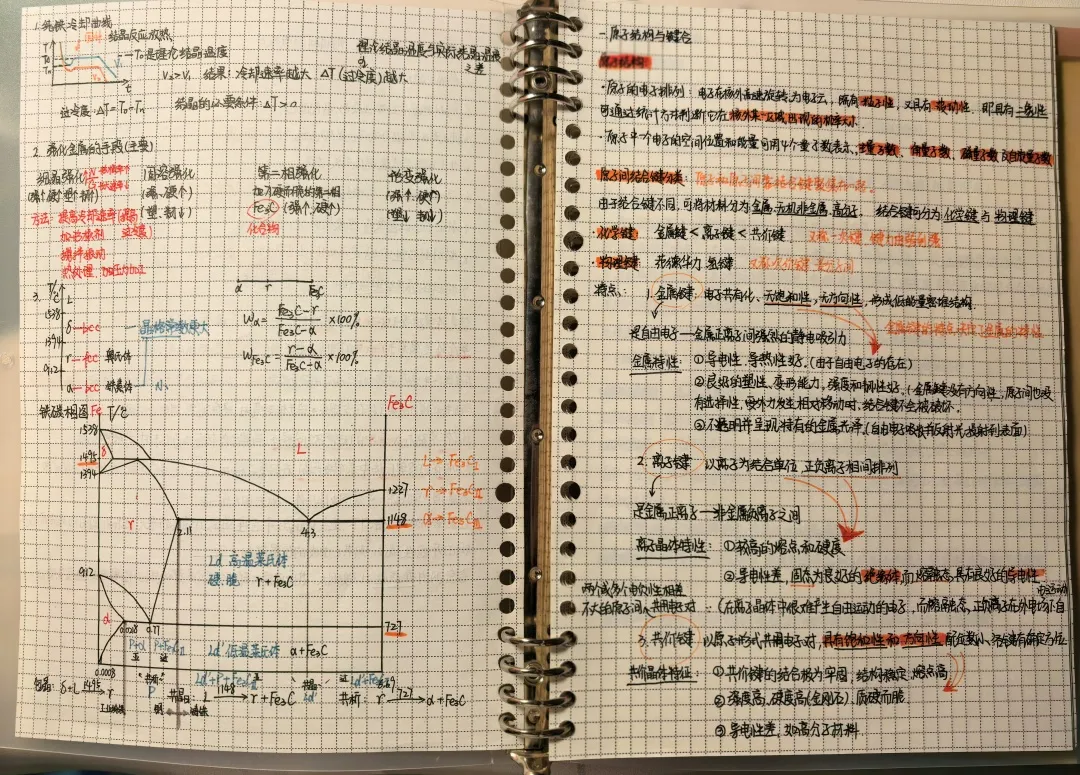 1. 纯铁冷却曲线
结晶反应放热
T
T₀
Tₙ
t
V₁
V₂
T₀是理论结晶温度
理论结晶温度与实际结晶温度
之差
V₂>V₁ 结果:冷却速率越大 ΔT(过冷度)越大
过冷度:ΔT=T₀-Tₙ
结晶的必要条件:ΔT>0
2. 强化金属的手段(主要)
细晶强化
固溶强化
第二相强化
形变强化
(强↑硬↑塑↑韧↑)
(强、硬↑)
加入硬而脆的第二相
(强↑.硬↑)
方法:提高冷却速率
(塑.韧↓)
Fe₃C(强↑.硬↑)
(塑↓ 韧↓)
化合物
搅拌振动
热处理
3. T/℃
1538 L
δ—bcc
1394
r—fcc 奥氏体
912
α—bcc 铁素体
α r Fe₃C
Wα = (Fe₃C-r)/(Fe₃C-α) ×100%
W Fe₃C = (r-α)/(Fe₃C-α) ×100%
铁碳相图 Fe T/℃
Fe₃C
1538
1495 δ
1394
L
L→Fe₃CⅠ
r→Fe₃CⅡ
α→Fe₃CⅢ
1227
1148
r
2.11
4.3
Ld 高温莱氏体
硬.脆 r+Fe₃C
912
α
0.0218
0.77
727
Ld'低温莱氏体 α+Fe₃C
P+α
P+Fe₃CⅡ
Ld'+P+Fe₃CⅡ
0.0008
包晶:δ+L 1495→r
1148→r+Fe₃C
共析:r 727→α+Fe₃C
一.原子结构与键合
原子结构
·原子的电子排列:电子在核外高速旋转,为电子云,既有粒子性,又具有波动性.即具有二象性
可通过统计方法判断它在核外某一区域出现的概率大小.
·原子中一个电子的空间位置和能量可用4个量子数表示,主量子数、角量子数、磁量子数及自旋量子数
原子间结合键分类:原子和原子间靠结合键聚集在一起.
由于结合键不同,可将材料分为金属.无机非金属.高分子. 结合键可分为:化学键与物理键
·化学键 金属键<离子键<共价键
·物理键 范德华力.氢键
特点: 1.金属键:电子共有化、无饱和性,无方向性,形成低能量密堆结构.
金属键的特点决定了金属的特性
是自由电子—金属正离子间强烈的静电吸引力
金属特性:①导电性.导热性好.(由于自由电子的存在)
②良好的塑性,变形能力,强度和韧性好.(金属键没有方向性,原子间也没
有选择性,受外力发生相对移动时,结合键不会被破坏.
③不透明并呈现特有的金属光泽.(自由电子吸收并反射光投射到表面)
2.离子键 以离子为结合单位 正负离子相间排列
是金属正离子—非金属负离子之间
离子晶体特性:①较高的熔点和硬度
②导电性差,固态为良好的绝缘体,而熔融态具有良好的导电性
(在离子晶体中很难产生自由运动的电子,而熔融态,正负离子在外电场作自
由运动)
两个或多个电负性相差
不大的原子间,共用电子对
3.共价键 以原子形式共用电子对,具有饱和性和方向性,配位数小、各键有确定方位
共价晶体特征:①共价键的结合极为牢固,结构稳定.熔点高
②强度高.硬度高(金刚石),质硬而脆.
③导电性差,如高分子材料